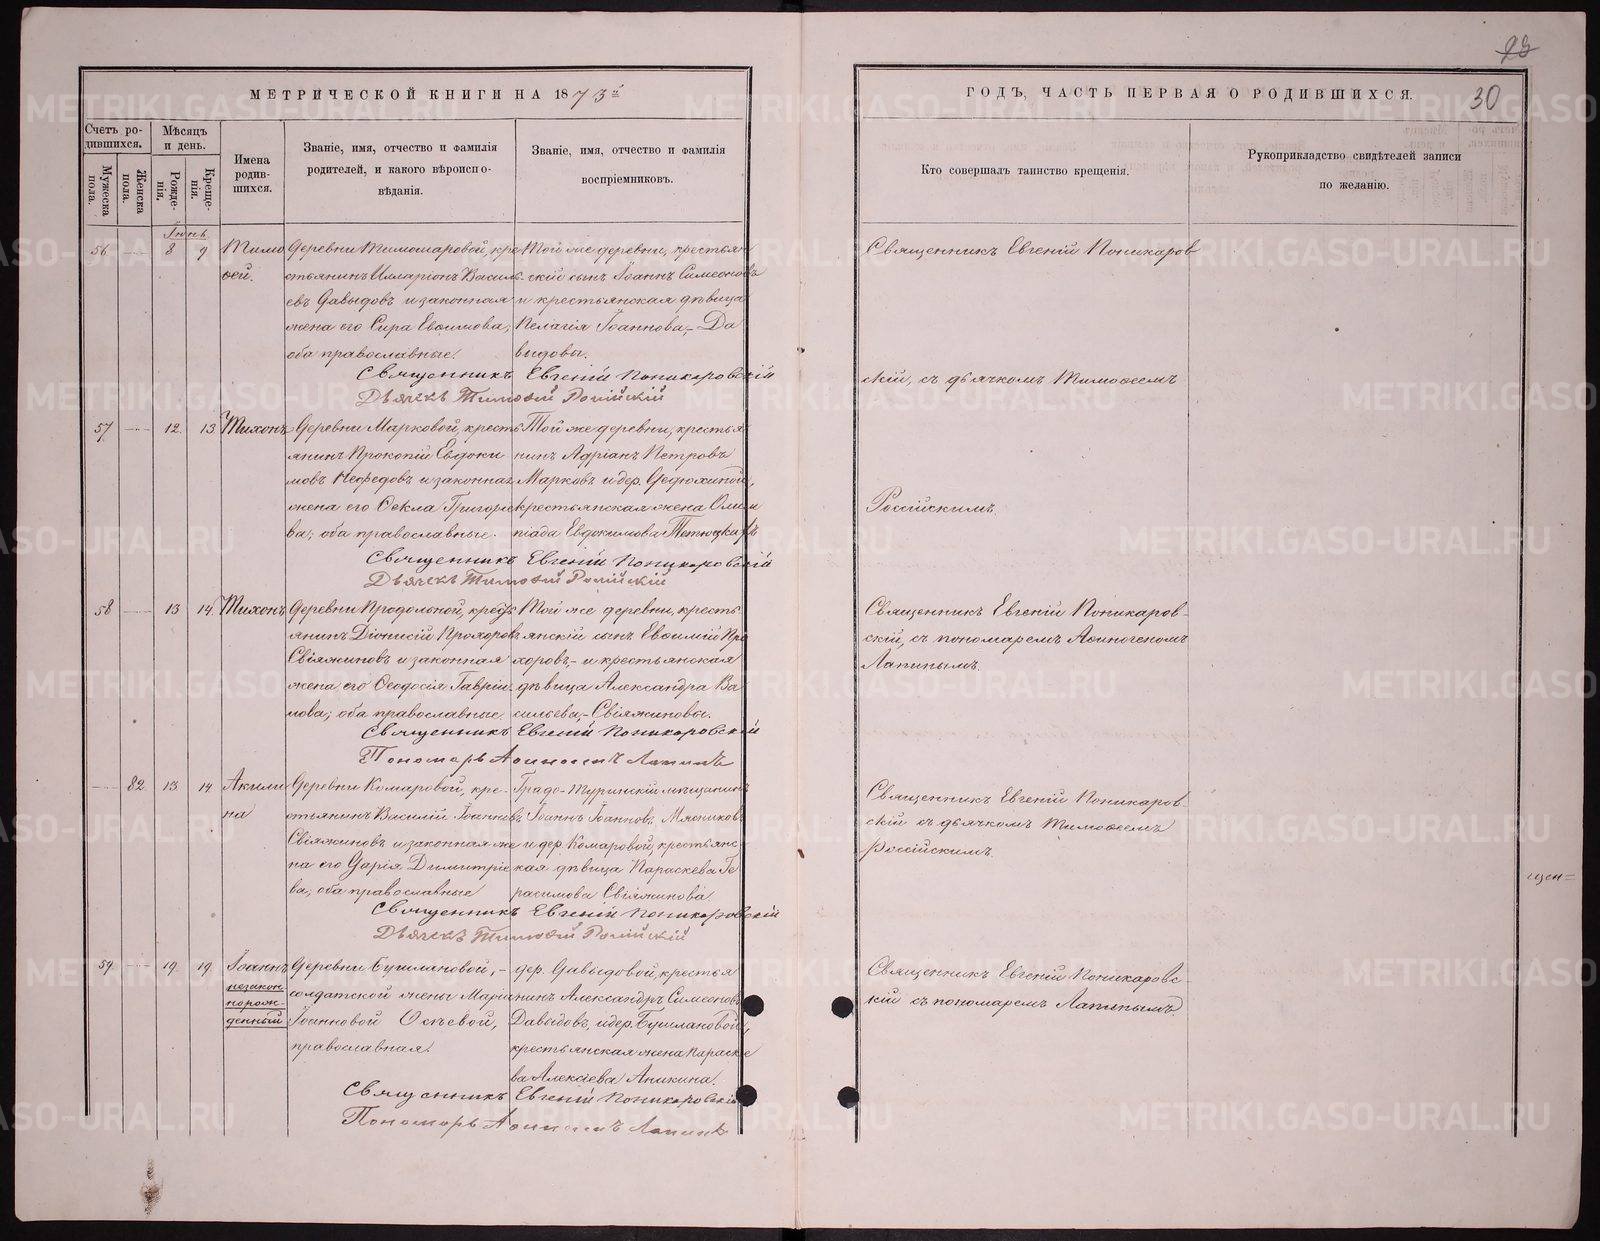 98
МЕТРИЧЕСКОЙ КНИГИ НА 1873й
ГОДЪ, ЧАСТЬ ПЕРВАЯ О РОДИВШИХСЯ.
30
Счетъ ро-
дившихся.
Мужеска
пола.
Женска
пола.
Мѣсяцъ
и день.
Рожде-
нія.
Креще-
нія.
Имена
родив-
шихся.
Званіе, имя, отчество и фамилія
родителей, и какого вѣроиспо-
вѣданія.
Званіе, имя, отчество и фамилія
воспріемниковъ.
Кто совершалъ таинство крещенія.
Рукоприкладство свидѣтелей записи
по желанію.
Іюнь
56 8 9
Тимо
ѳей.
Деревни Тимомаровой, кре
стьянинъ Илларіонъ Василь
евъ Давыдовъ и законная
жена его Сира Евѳимова,
оба православные.
Той же деревни, крестьян
скій сынъ Іоаннъ Симеоновъ
и крестьянская дѣвица
Пелагія Іоаннова,- Да
выдовы.
Священникъ Евгеній Поникаровскій
Дьячекъ Тимоѳей Россійскій
Священникъ Евгеній Поникаров
скій, съ дьячкомъ Тимоѳеемъ
Россійскимъ.
57 12 13
Тихонъ
Деревни Марковой, кресть
янинъ Прокопій Евдоки
мовъ Нефедовъ и законная
жена его Ѳекла Григорье
ва, оба православные.
Той же деревни, крестья
нинъ Адріанъ Петровъ
Марковъ и дер. Федюхиной,
крестьянская жена Олим
піада Евдокимова
Священникъ Евгеній Поникаровскій
Дьячекъ Тимоѳей Россійскій
58 13 14
Тихонъ
Деревни Продольной, кресть
янинъ Діонисій Прохоровъ
Свіяжиновъ и законная
жена его Ѳеодосія Гавріи
лова; оба православные.
Той же деревни, кресть
янскій сынъ Евѳимій Про
хоровъ,- и крестьянская
дѣвица Александра Ва
сильева,- Свіяжиновы.
Священникъ Евгеній Поникаровскій
Пономарь Аѳиногенъ Лапинъ
Священникъ Евгеній Поникаров-
скій, съ пономаремъ Аѳиногеномъ
Лапинымъ.
82 13 14
Акили
на
Деревни Комаровой, кре-
стьянинъ Василій Іоанновъ
Свіяжиновъ и законная же
на его Дарія Димитріе
ва, оба православные
Градо-Туринскій мѣщанинъ
Іоаннъ Іоанновъ Мясниковъ
и дер. Комаровой, крестьянс
кая дѣвица Параскева Ге
расимова Свіяжинова
Священникъ Евгеній Поникаровскій
Дьячекъ Тимоѳей Россійскій
Священникъ Евгеній Поникаров-
скій съ дьячкомъ Тимоѳеемъ
Россійскимъ.
щен=
59 19 19
Іоаннъ
незакон
норож-
денный
Деревни Бушлановой,-
солдатской жены Маріи
Іоанновой Осѣевой,
православная.
дер. Давыдовой, крестья
нинъ Александръ Симеоновъ
Давыдовъ, и дер. Бушлановой,
крестьянская жена Параске
ва Алексіева Аникина.
Священникъ Евгеній Поникаровскій
Пономарь Аѳиногенъ Лапинъ
Священникъ Евгеній Поникаровс-
кій съ пономаремъ Лапинымъ.
METRIKI.GASO-URAL.RU